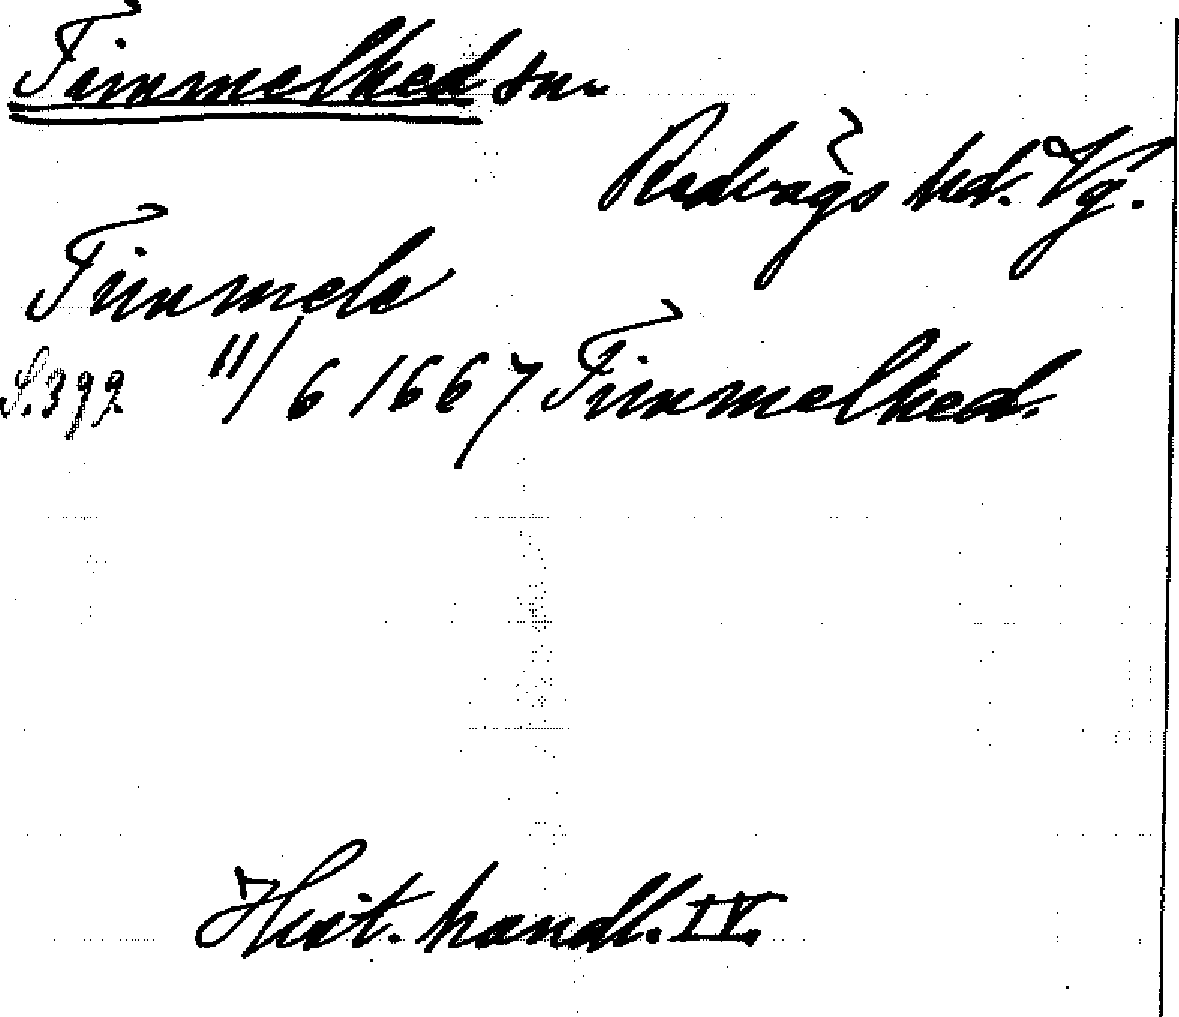 Timmelhed sn.
Redvägs hd. Vg.
Timmele
S.392 11/6 1667 Timmelhed.
Hist. handl. IV.